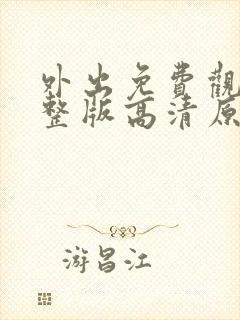 外出免費觀
整版高清原
游昌江